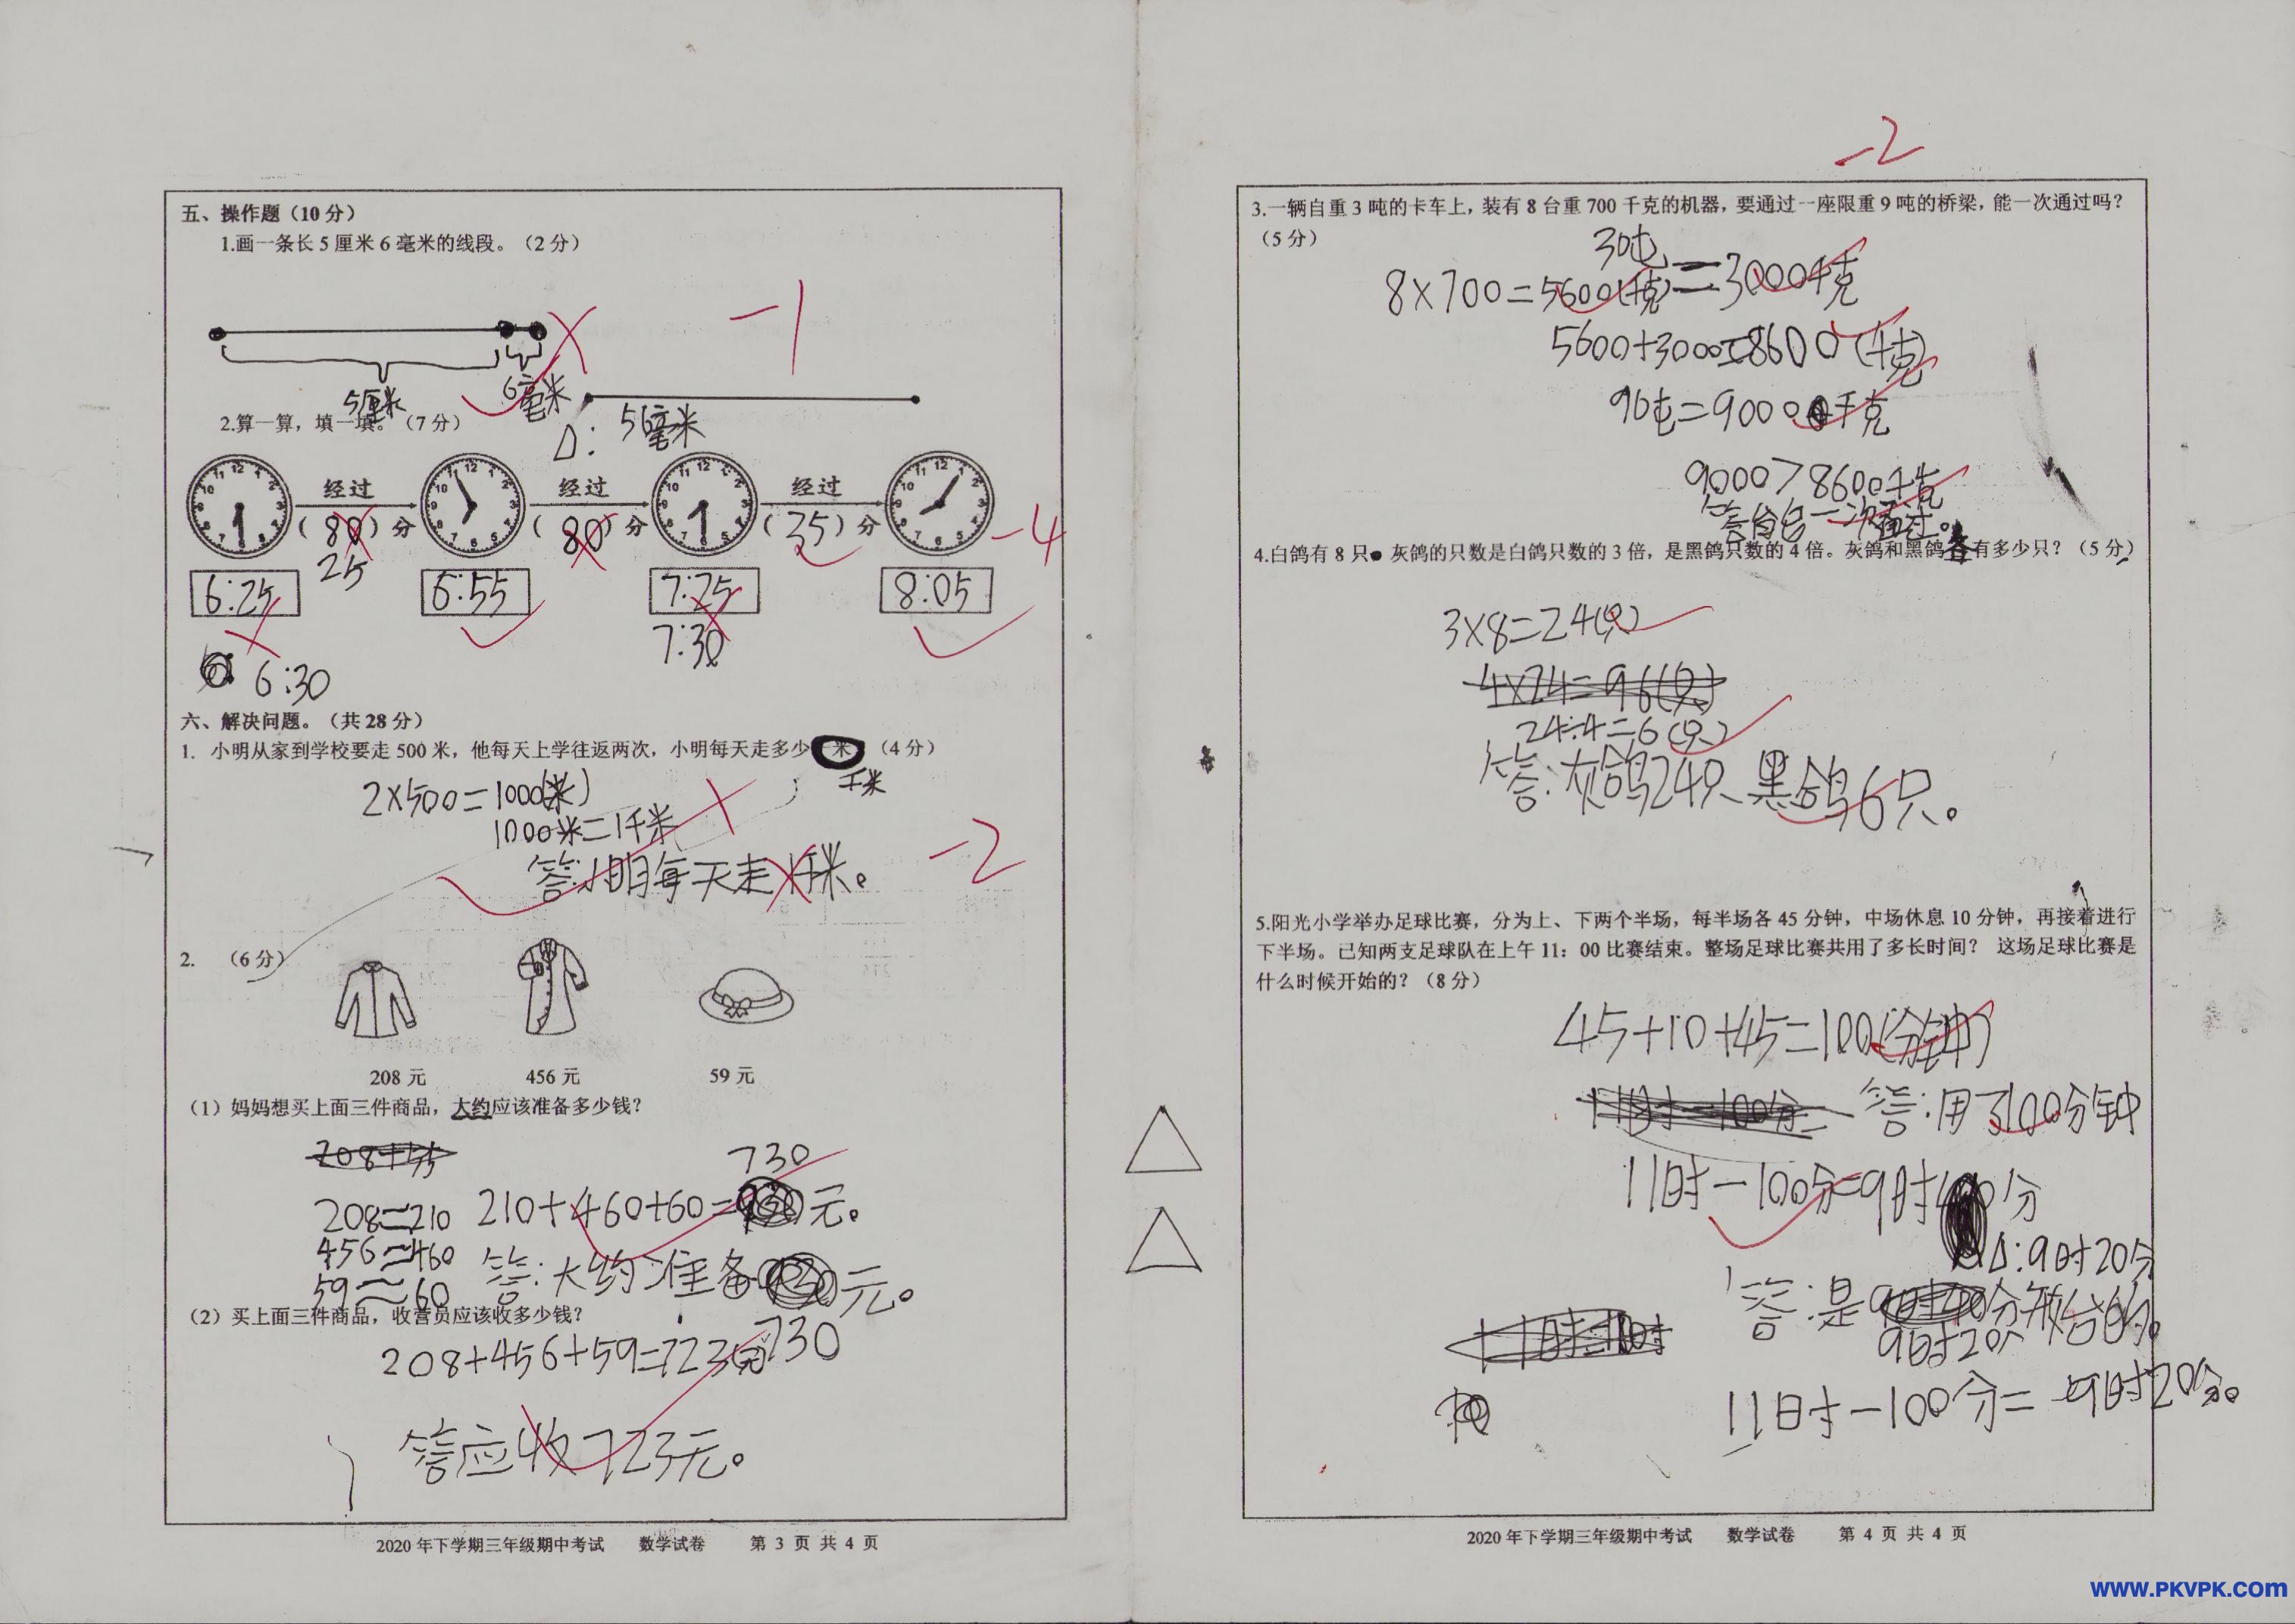 五、操作题（10 分）
1.画一条长 5 厘米 6 毫米的线段。（2 分）
-1
5厘米
6毫米
2.算一算，填一填。（7 分）
△: 56毫米
经过 经过 经过
( 80 ) 分 ( 80 ) 分 ( 35 ) 分
-4
25
6:25 6:55 7:25 8:05
7:30
6:30
六、解决问题。（共 28 分）
1. 小明从家到学校要走 500 米，他每天上学往返两次，小明每天走多少千米？（4 分）
千米
2×500=1000(米)
1000米=1千米
答:小明每天走1千米。
-2
2. （6 分）
208 元 456 元 59 元
（1）妈妈想买上面三件商品，大约应该准备多少钱？
730
208≈210 210+460+60= 元。
456≈460
59≈60 答:大约准备 元。
（2）买上面三件商品，收营员应该收多少钱？
730
208+456+59=723元
答应收723元。
2020 年下学期三年级期中考试 数学试卷 第 3 页 共 4 页
-2
3.一辆自重 3 吨的卡车上，装有 8 台重 700 千克的机器，要通过一座限重 9 吨的桥梁，能一次通过吗？
（5 分）
3吨=3000千克
8×700=5600(千克)
5600+3000=8600(千克)
9吨=9000千克
9000>8600千克
答能一次通过。
4.白鸽有 8 只，灰鸽的只数是白鸽只数的 3 倍，是黑鸽只数的 4 倍。灰鸽和黑鸽各有多少只？（5 分）
3×8=24(只)
4×24=96(只)
24÷4=6(只)
答:灰鸽24只、黑鸽6只。
5.阳光小学举办足球比赛，分为上、下两个半场，每半场各 45 分钟，中场休息 10 分钟，再接着进行
下半场。已知两支足球队在上午 11：00 比赛结束。整场足球比赛共用了多长时间？ 这场足球比赛是
什么时候开始的？（8 分）
45+10+45=100(分钟)
11时-100分= 答:用了100分钟
11时-100分=9时 分
△:9时20分
答:是 分开始的。
9时20
11时-100分=9时20分。
2020 年下学期三年级期中考试 数学试卷 第 4 页 共 4 页
www.PKVPK.com